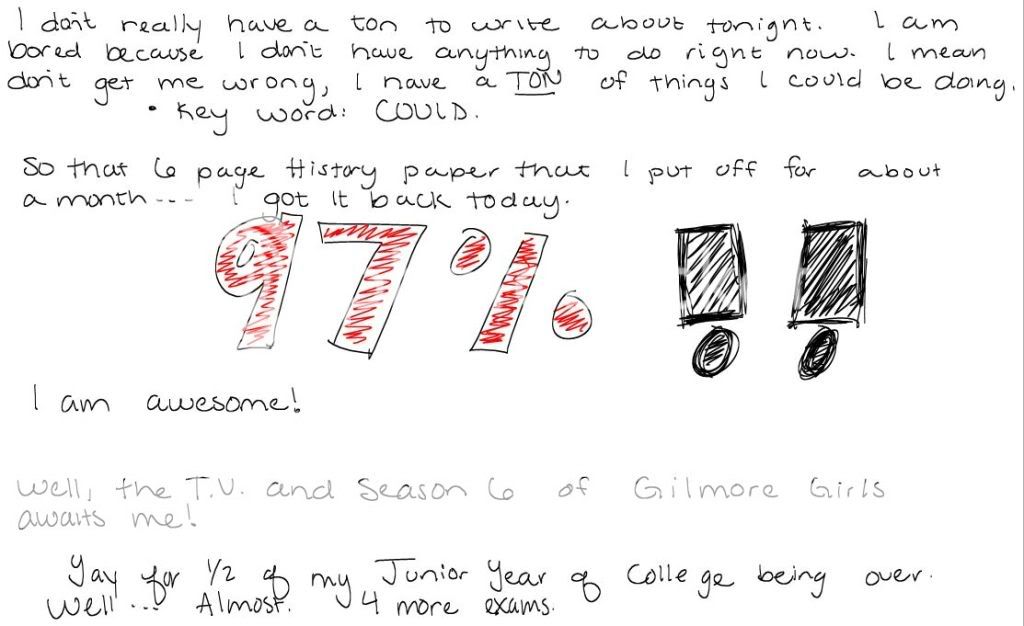 I don't really have a ton to write about tonight. I am
bored because I don't have anything to do right now. I mean
don't get me wrong, I have a TON of things I could be doing.
• Key word: COULD.
So that 6 page History paper that I put off for about
a month--- I got it back today.
97%!!
I am awesome!
Well, the T.V. and Season 6 of Gilmore Girls
awaits me!
Yay for 1/2 of my Junior Year of College being over.
Well... Almost. 4 more exams.